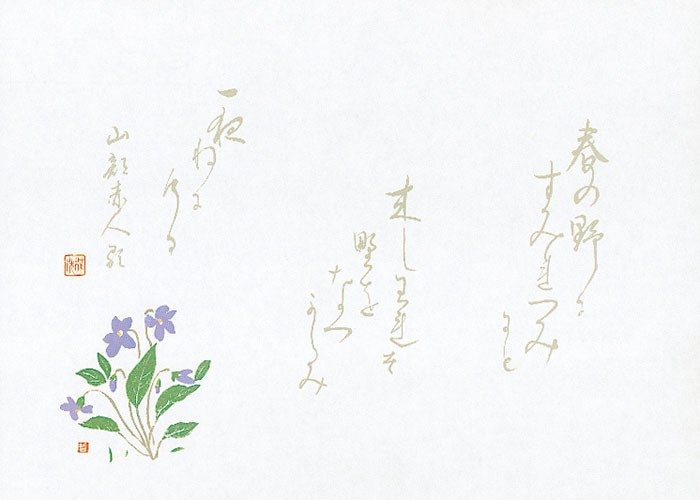 春の野に
すみれつみ
にと
来しわれそ
野を
なつ
かしみ
一夜
ねに
ける
山部赤人歌